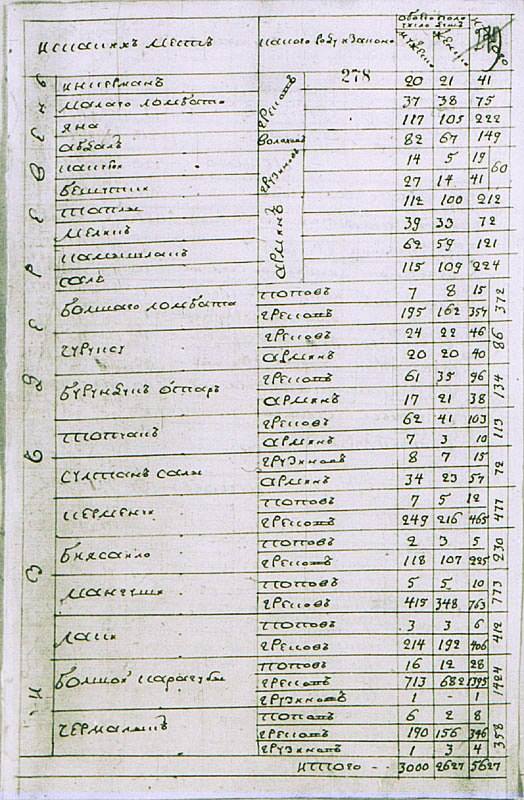 мужеско
женско
278
инкерманъ грековъ 20 21 41
малаго ломбата 37 38 75
яна 117 105 222
авдалъ волоховъ 82 67 149
грузиновъ 14 5 19 60
бешуйки 27 14 41
топлы армянъ 112 100 212
меликъ 39 33 72
камышлакъ 62 59 121
салы 115 109 224
болшаго ломбата поповъ 7 8 15 372
грековъ 195 162 357
чуруксу грековъ 24 22 46 86
армянъ 20 20 40
бурундукъ отаръ грековъ 61 35 96 134
армянъ 17 21 38
топчакъ грековъ 62 41 103 113
армянъ 7 3 10
султанъ салы грузиновъ 8 7 15 72
армянъ 34 23 57
керменчи поповъ 7 5 12 477
грековъ 249 216 465
биясанло поповъ 2 3 5 230
грековъ 118 107 225
мангуши поповъ 5 5 10 773
грековъ 415 348 763
лаки поповъ 3 3 6 412
грековъ 214 192 406
болшой карагубы поповъ 16 12 28 1424
грековъ 713 682 1395
грузиновъ 1 - 1
чермалыкъ поповъ 6 2 8 358
грековъ 190 156 346
грузиновъ 1 3 4
итого -- 3000 2627 5627
из деревень